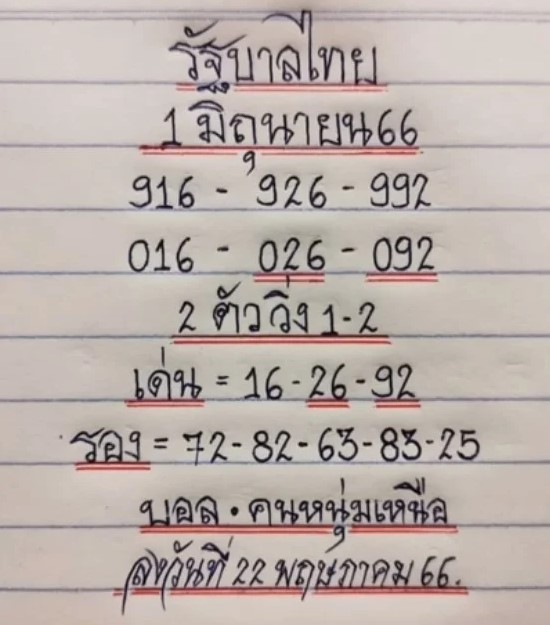 รัฐบาลไทย
1 มิถุนายน66
916 - 926 - 992
016 - 026 - 092
2 ตัววิ่ง 1-2
เด่น = 16-26-92
รอง = 72-82-63-83-25
บอล . คนหนุ่มเหนือ
ลงวันที่ 22 พฤษภาคม 66.